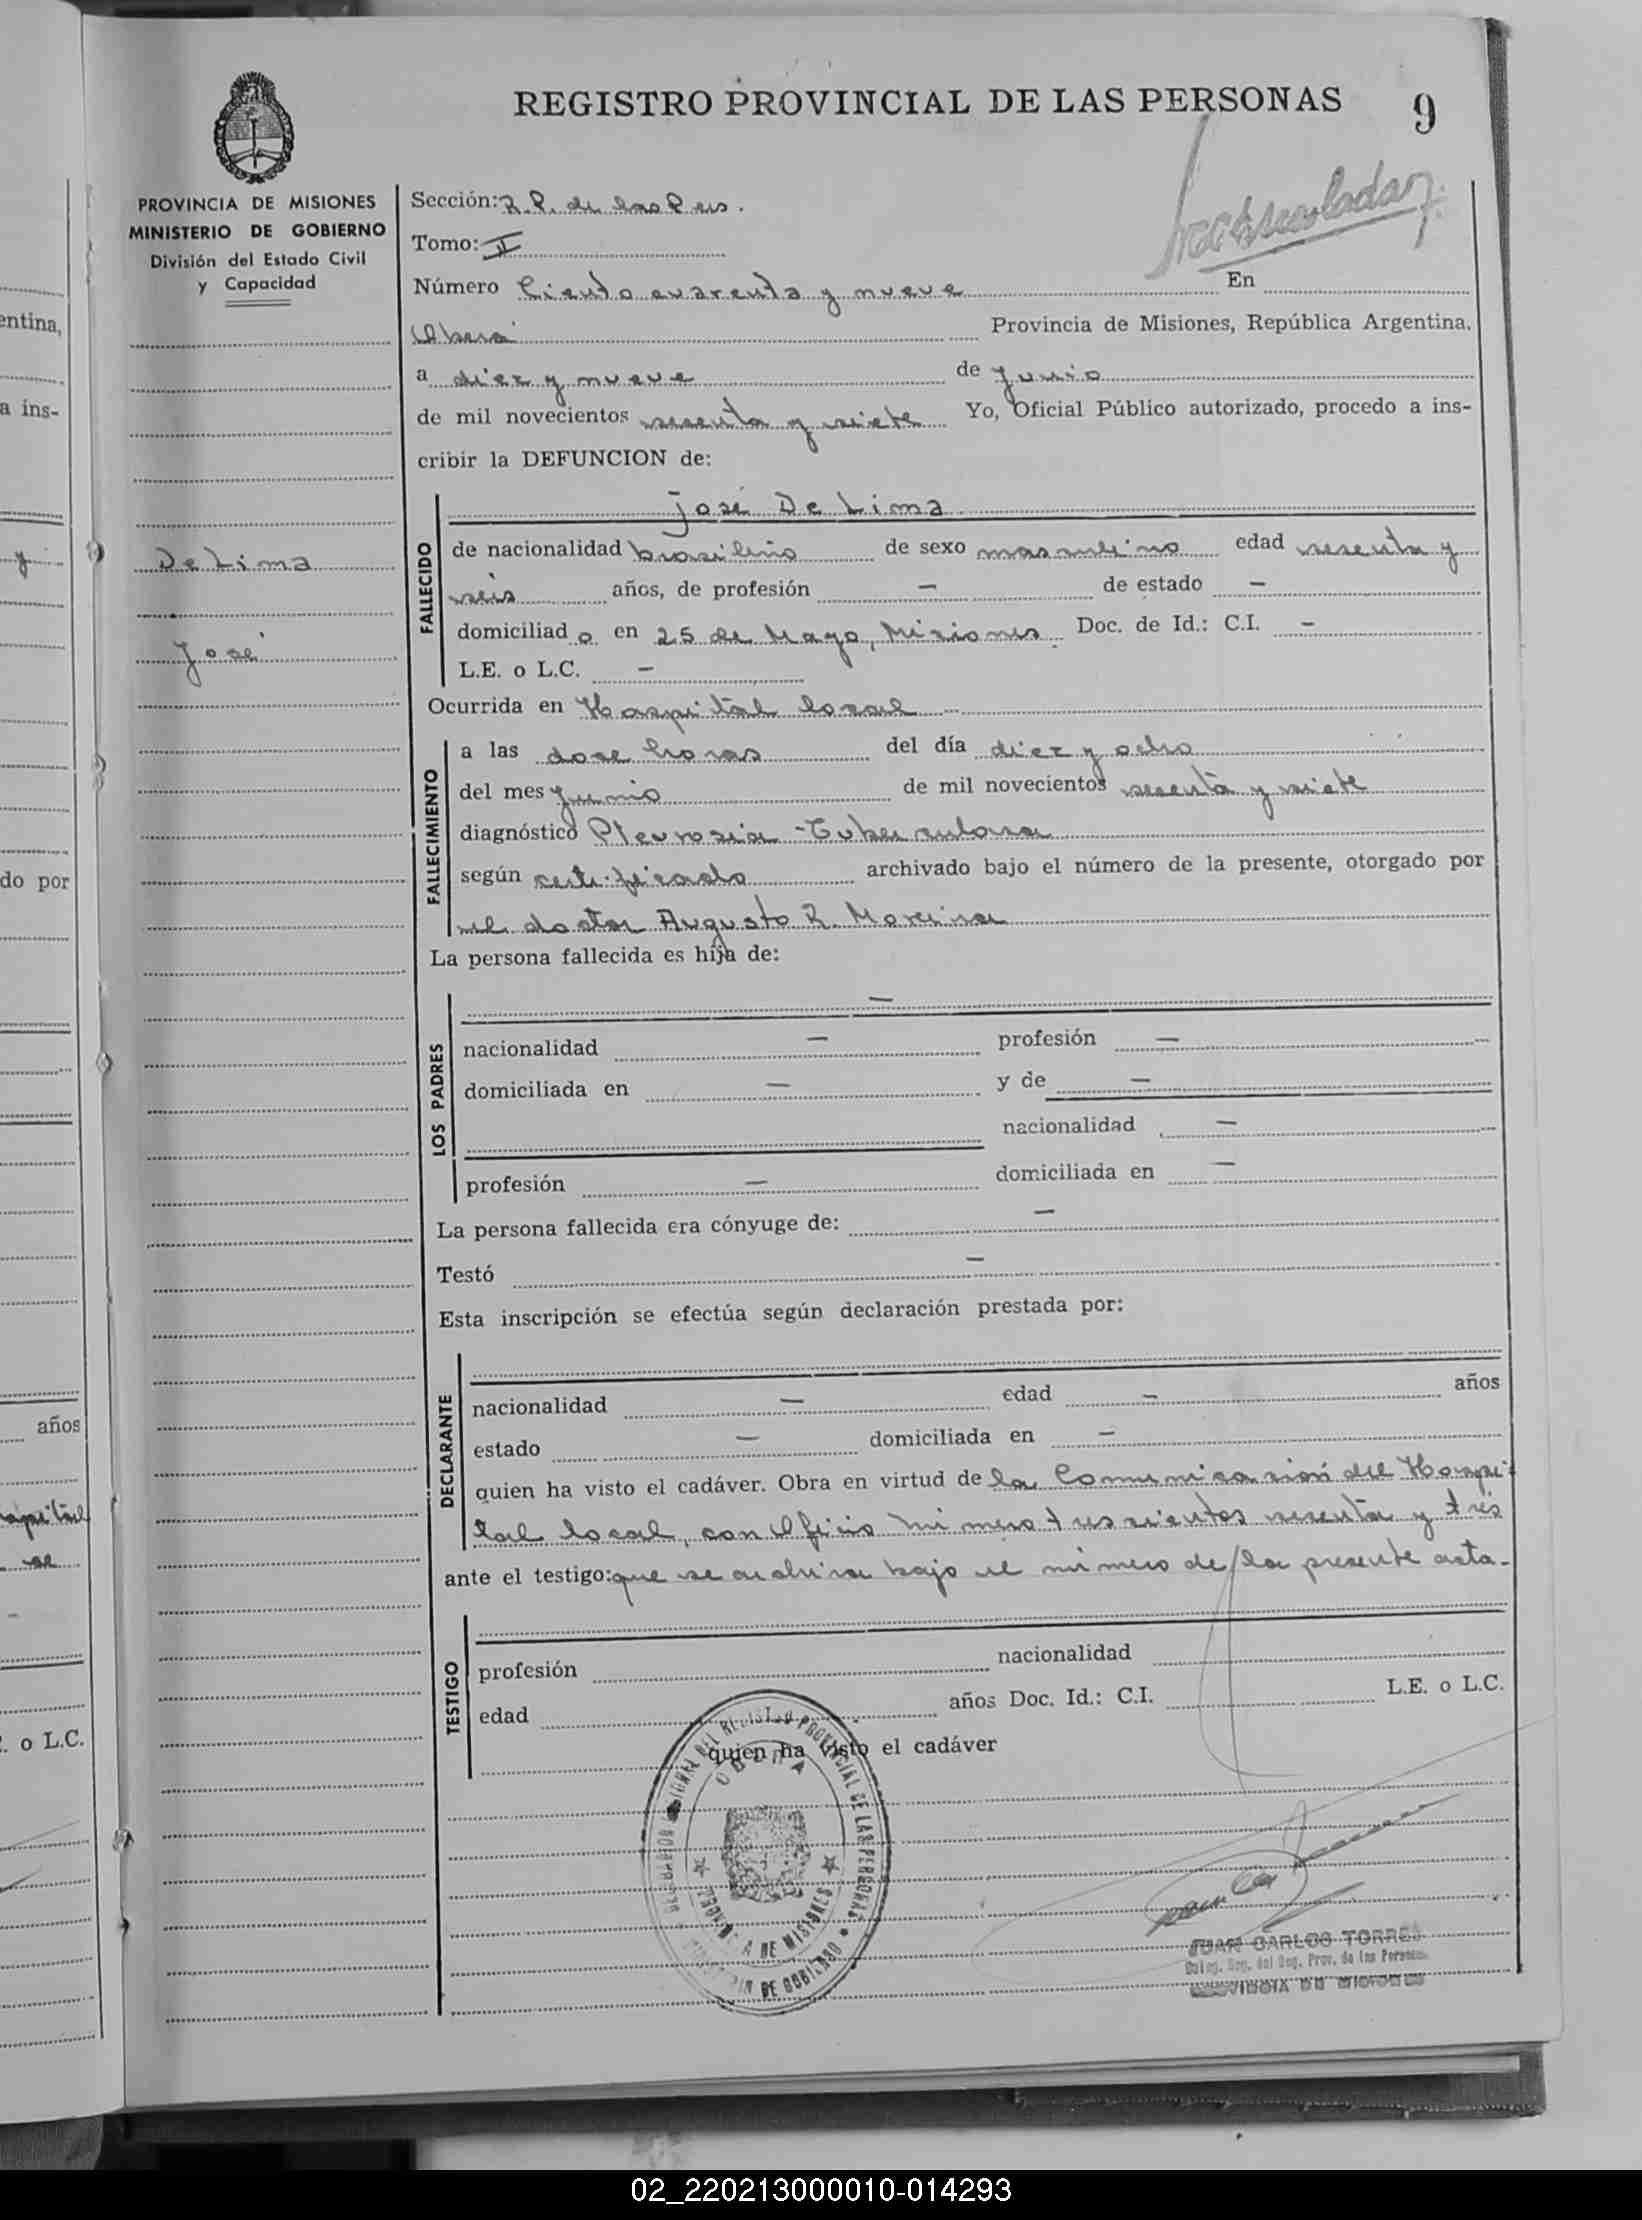 REGISTRO PROVINCIAL DE LAS PERSONAS 9
PROVINCIA DE MISIONES
MINISTERIO DE GOBIERNO
División del Estado Civil
y Capacidad
De Lima
José
Sección: R.P. de las Pers.
Tomo: II
Número Ciento cuarenta y nueve En
Oberá Provincia de Misiones, República Argentina,
a diez y nueve de Junio
de mil novecientos sesenta y siete Yo, Oficial Público autorizado, procedo a ins-
cribir la DEFUNCION de:
FALLECIDO
José De Lima
de nacionalidad brasileño de sexo masculino edad sesenta y
seis años, de profesión — de estado —
domiciliado en 25 de Mayo, Misiones. Doc. de Id.: C.I. —
L.E. o L.C. —
Ocurrida en Hospital local
FALLECIMIENTO
a las doce horas del día diez y ocho
del mes Junio de mil novecientos sesenta y siete
diagnóstico Pleuresia - Tuberculosa
según certificado archivado bajo el número de la presente, otorgado por
el doctor Augusto R. Moreira
La persona fallecida es hija de:
LOS PADRES
—
nacionalidad — profesión —
domiciliada en — y de —
nacionalidad —
profesión — domiciliada en —
La persona fallecida era cónyuge de: —
Testó —
Esta inscripción se efectúa según declaración prestada por:
DECLARANTE
nacionalidad — edad — años
estado — domiciliada en —
quien ha visto el cadáver. Obra en virtud de la Comunicación del Hospi-
tal local, con Oficio número trescientos sesenta y tres
ante el testigo: que se archiva bajo el número de la presente acta-
TESTIGO
profesión nacionalidad
edad años Doc. Id.: C.I. L.E. o L.C.
quien ha visto el cadáver
REGISTRO PROVINCIAL DE LAS PERSONAS
OBERA
DE MISIONES
DE GOBIERNO
JUAN CARLOS TORRES
Reg. del Reg. Prov. de las Personas
PROVINCIA DE MISIONES
entina,
a ins-
y
do por
años
se
o L.C.
02_220213000010-014293